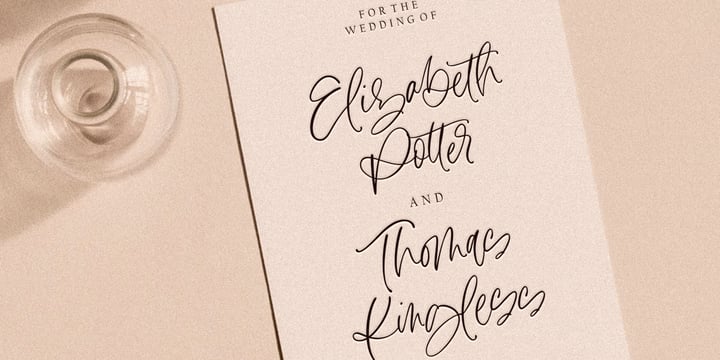 FOR THE
WEDDING OF
Elizabeth
Potter
AND
Thomas
Kingless